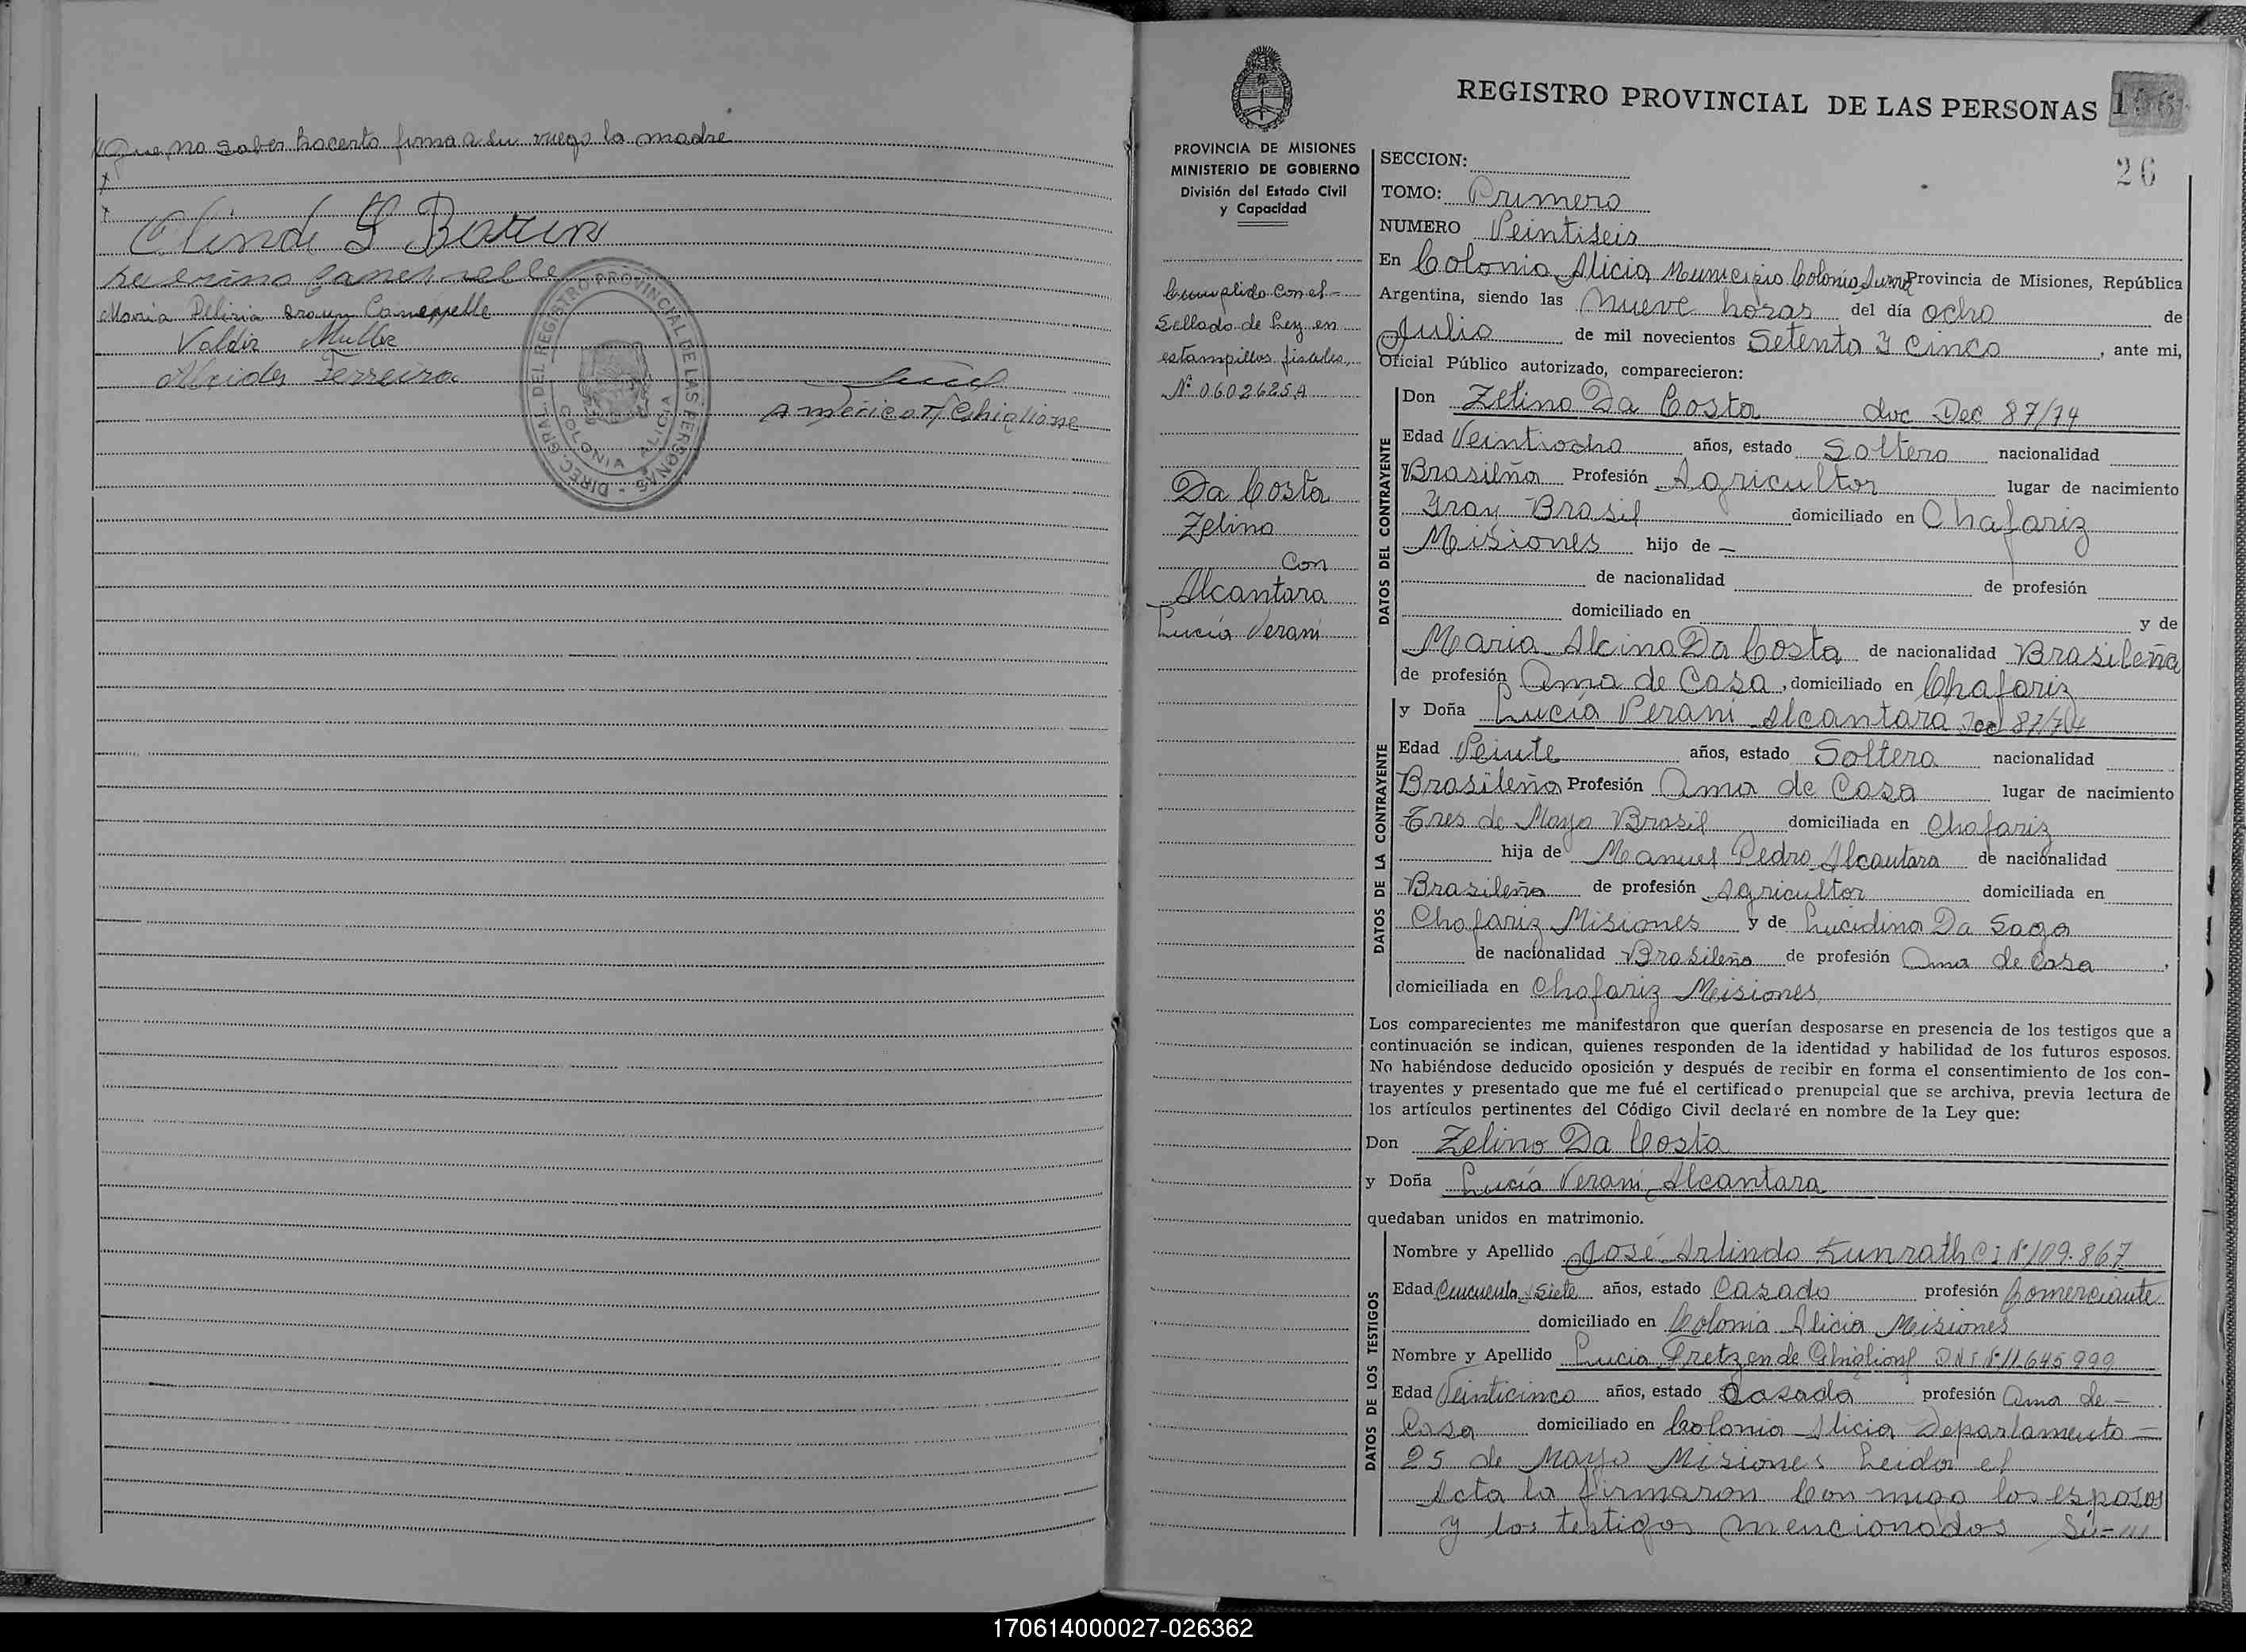 Que no saber hacerlo firma a su ruego la madre
Olinda S
Maria Caneppelle
Valdir Muller
Alcides Ferreira
Americo Ghiglione
DIREC. GRAL. DEL REGISTRO PROVINCIAL DE LAS PERSONAS -
COLONIA ALICIA
REGISTRO PROVINCIAL DE LAS PERSONAS
26
PROVINCIA DE MISIONES
MINISTERIO DE GOBIERNO
División del Estado Civil
y Capacidad
Cumplido con el-
Sellado de Ley en
estampillas fiscales,
Nº 0602625A
Da Costa
Zelino
Con
Alcantara
Lucía Verani
SECCION:
TOMO: Primero
NUMERO Veintiseis
En Colonia Alicia Municipio Colonia Aurora Provincia de Misiones, República
Argentina, siendo las Nueve horas del día ocho de
Julio de mil novecientos Setenta y Cinco, ante mi,
Oficial Público autorizado, comparecieron:
DATOS DEL CONTRAYENTE
Don Zelino Da Costa doc Dec 87/74
Edad Veintiocho años, estado Soltero nacionalidad
Brasileña Profesión Agricultor lugar de nacimiento
Brasil domiciliado en Chafariz
Misiones hijo de —
de nacionalidad de profesión
domiciliado en y de
Maria Alcina Da Costa de nacionalidad Brasileña
de profesión Ama de Casa, domiciliado en Chafariz
DATOS DE LA CONTRAYENTE
y Doña Lucía Verani Alcantara Dec 87/74
Edad Veinte años, estado Soltera nacionalidad
Brasileña Profesión Ama de Casa lugar de nacimiento
Tres de Mayo Brasil domiciliada en Chafariz
hija de Manuel Pedro Alcantara de nacionalidad
Brasileña de profesión Agricultor domiciliada en
Chafariz Misiones y de Lucidina Da Saga
de nacionalidad Brasileña de profesión Ama de Casa,
domiciliada en Chafariz Misiones
Los comparecientes me manifestaron que querían desposarse en presencia de los testigos que a
continuación se indican, quienes responden de la identidad y habilidad de los futuros esposos.
No habiéndose deducido oposición y después de recibir en forma el consentimiento de los con-
trayentes y presentado que me fué el certificado prenupcial que se archiva, previa lectura de
los artículos pertinentes del Código Civil declaré en nombre de la Ley que:
Don Zelino Da Costa
y Doña Lucía Verani Alcantara
quedaban unidos en matrimonio.
DATOS DE LOS TESTIGOS
Nombre y Apellido José Arlindo Kunrath C I Nº 109.867
Edad Cincuenta y Siete años, estado Casado profesión Comerciante
domiciliado en Colonia Alicia Misiones
Nombre y Apellido Lucia Fretzen de Ghiglione DNI Nº 11645999
Edad Veinticinco años, estado Casada profesión Ama de -
Casa domiciliado en Colonia Alicia Departamento -
25 de Mayo Misiones Leida el
Acta la firmaron Con migo los esposos
y los testigos mencionados
170614000027-026362